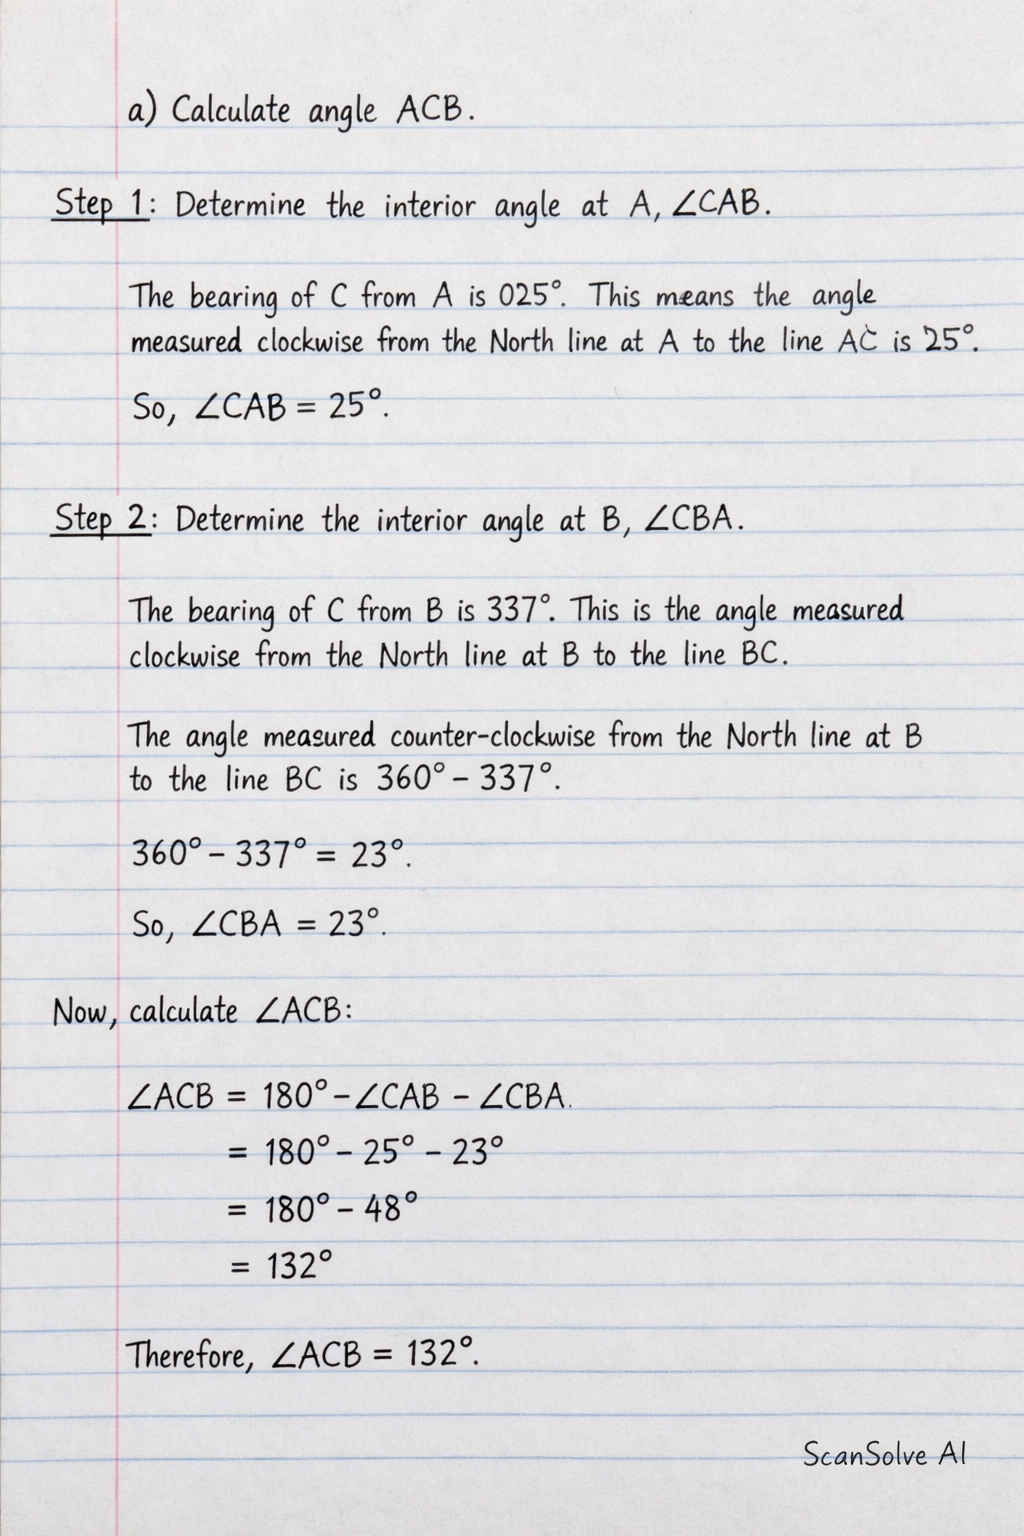 a) Calculate angle ACB.
Step 1: Determine the interior angle at A, ∠CAB.
The bearing of C from A is 025°. This means the angle
measured clockwise from the North line at A to the line AC is 25°.
So, ∠CAB = 25°.
Step 2: Determine the interior angle at B, ∠CBA.
The bearing of C from B is 337°. This is the angle measured
clockwise from the North line at B to the line BC.
The angle measured counter-clockwise from the North line at B
to the line BC is 360° – 337°.
360° – 337° = 23°.
So, ∠CBA = 23°.
Now, calculate ∠ACB:
∠ACB = 180° – ∠CAB – ∠CBA.
= 180° – 25° – 23°
= 180° – 48°
= 132°
Therefore, ∠ACB = 132°.
ScanSolve AI